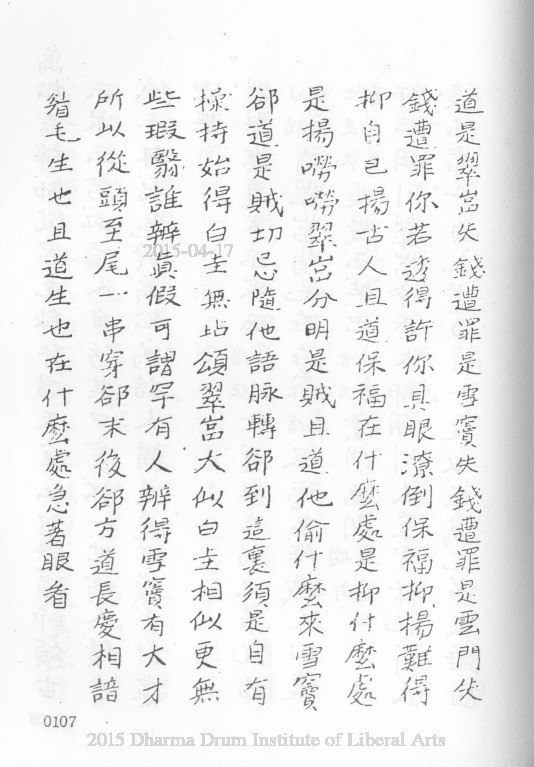 道是翠嵓失錢遭罪是雪竇失錢遭罪是雲門失
錢遭罪你若透得許你具眼潦倒保福抑揚難得
抑自己揚古人且道保福在什麼處是抑什麼處
是揚嘮嘮翠嵓分明是賊且道他偷什麼來雪竇
郤道是賊切忌隨他語脉轉郤到這裏須是自有
操持始得白圭無玷頌翠嵓大似白圭相似更無
些瑕翳誰辨真假可謂罕有人辨得雪竇有大才
所以從頭至尾一串穿郤末後郤方道長慶相諳
眉毛生也且道生也在什麼處急著眼看
0107
2015-04-17
2015 Dharma Drum Institute of Liberal Arts